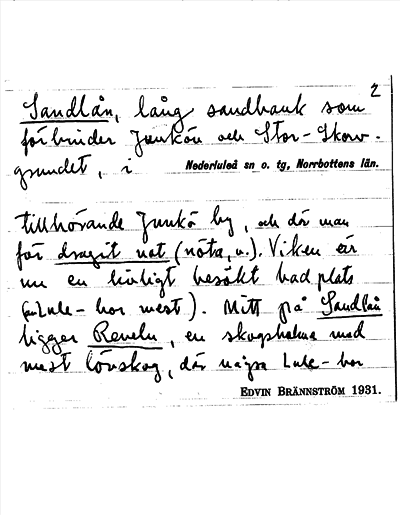 2
Sandlån, lång sandbank som
förbinder Junkön och Stor-Skorv-
grundet, i Nederluleå sn o. tg, Norrbottens län.
tillhörande Junkö by, och där man
för dragit not (nöta, v.). Viken är
nu en livligt besökt badplats
(Lule-bor mest). Mitt på Sandlån
ligger Reveln, en skogsholme med
mest lövskog, där några Lule-bor
EDVIN BRÄNNSTRÖM 1931.